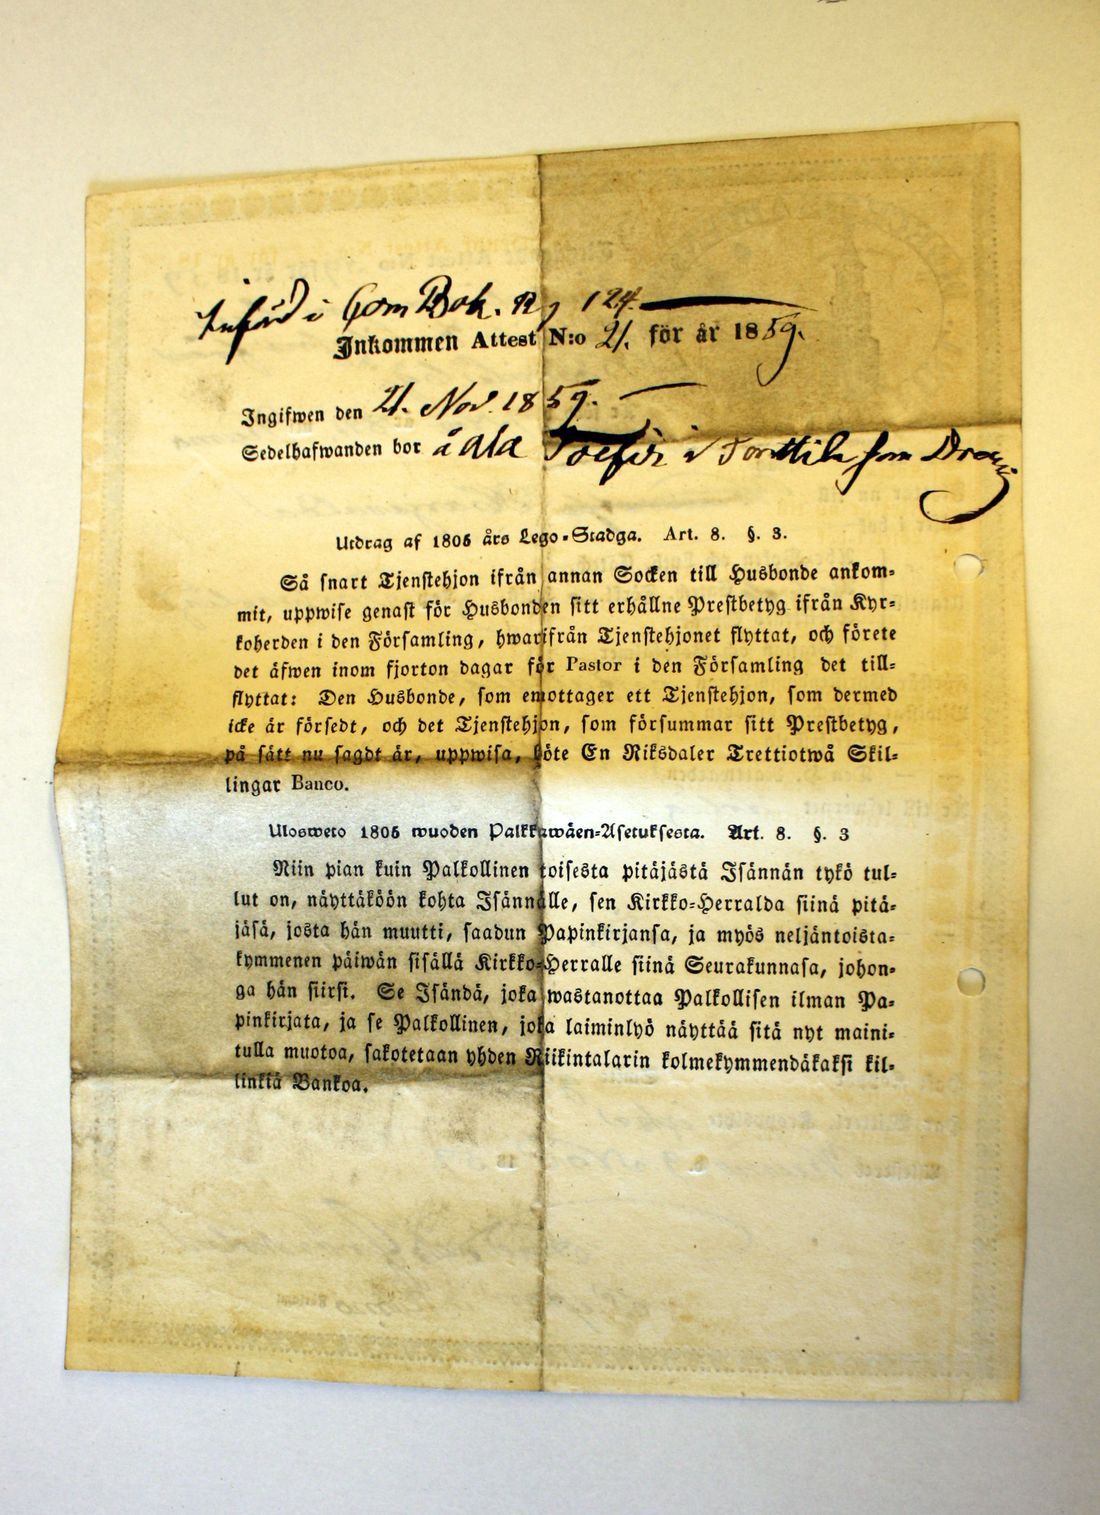 Införd i Com Bok. pag 124.
Inkommen Attest N:o 21. för år 1859.
Ingifwen den 21. Nov. 1859.
Sedelhafwanden bor å Ala i Torttila som Dreng
Utdrag af 1805 års Lego-Stadga. Art. 8. §. 3.
Så snart Tjenstehjon ifrån annan Socken till Husbonde ankom-
mit, uppwise genast för Husbonden sitt erhållne Prestbetyg ifrån Kyr-
koherden i den Församling, hwarifrån Tjenstehjonet flyttat, och förete
det äfwen inom fjorton dagar för Pastor i den Församling det till-
flyttat: Den Husbonde, som emottager ett Tjenstehjon, som dermed
icke är försedt, och det Tjenstehjon, som försummar sitt Prestbetyg,
på sätt nu sagdt är, uppwisa, böte En Riksdaler Trettiotwå Skil-
lingar Banco.
Ulosweto 1805 wuoden Palkkawäen-Asetuksesta. Art. 8. §. 3
Niin pian kuin Palkollinen toisesta pitäjästä Isännän tykö tul-
lut on, näyttäköön kohta Isännälle, sen Kirkko-Herralda siinä pitä-
jäsä, josta hän muutti, saadun Papinkirjansa, ja myös neljäntoista-
kymmenen päiwän sisällä Kirkko-Herralle siinä Seurakunnasa, johon-
ga hän siirsi. Se Isändä, joka wastanottaa Palkollisen ilman Pa-
pinkirjata, ja se Palkollinen, joka laiminlyö näyttää sitä nyt maini-
tulla muotoa, sakotetaan yhden Riikintalarin kolmekymmendäkaksi kil-
linkiä Bankoa.